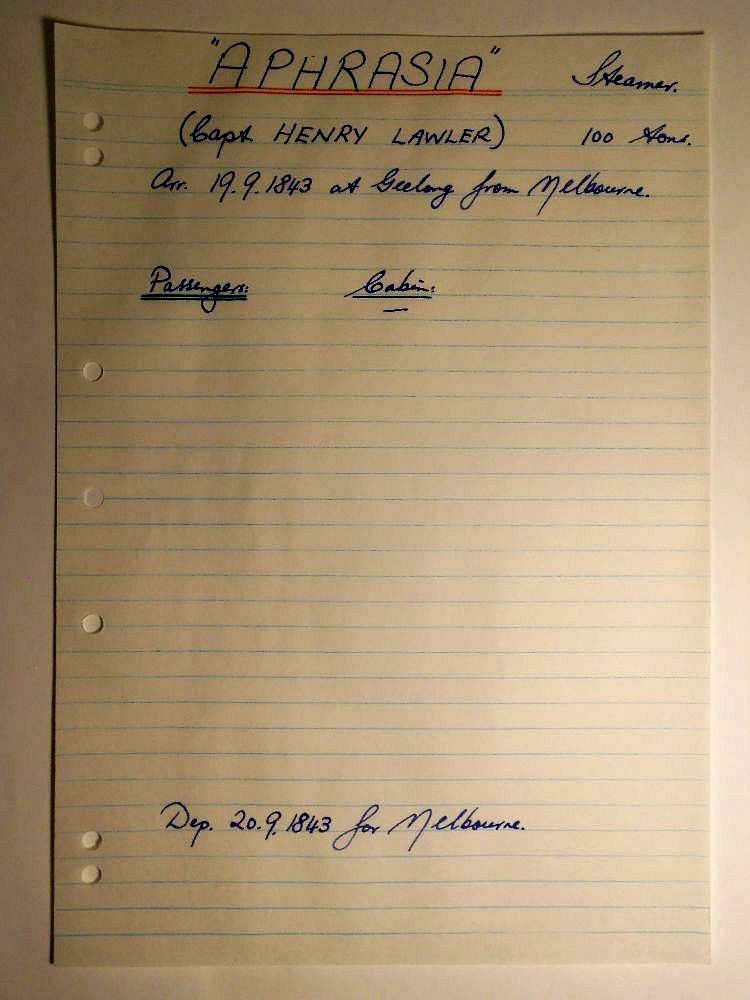 "APHRASIA" Steamer.
(Capt. HENRY LAWLER) 100 tons.
Arr. 19.9.1843 at Geelong from Melbourne.
Passengers: Cabin:
—
Dep. 20.9.1843 for Melbourne.